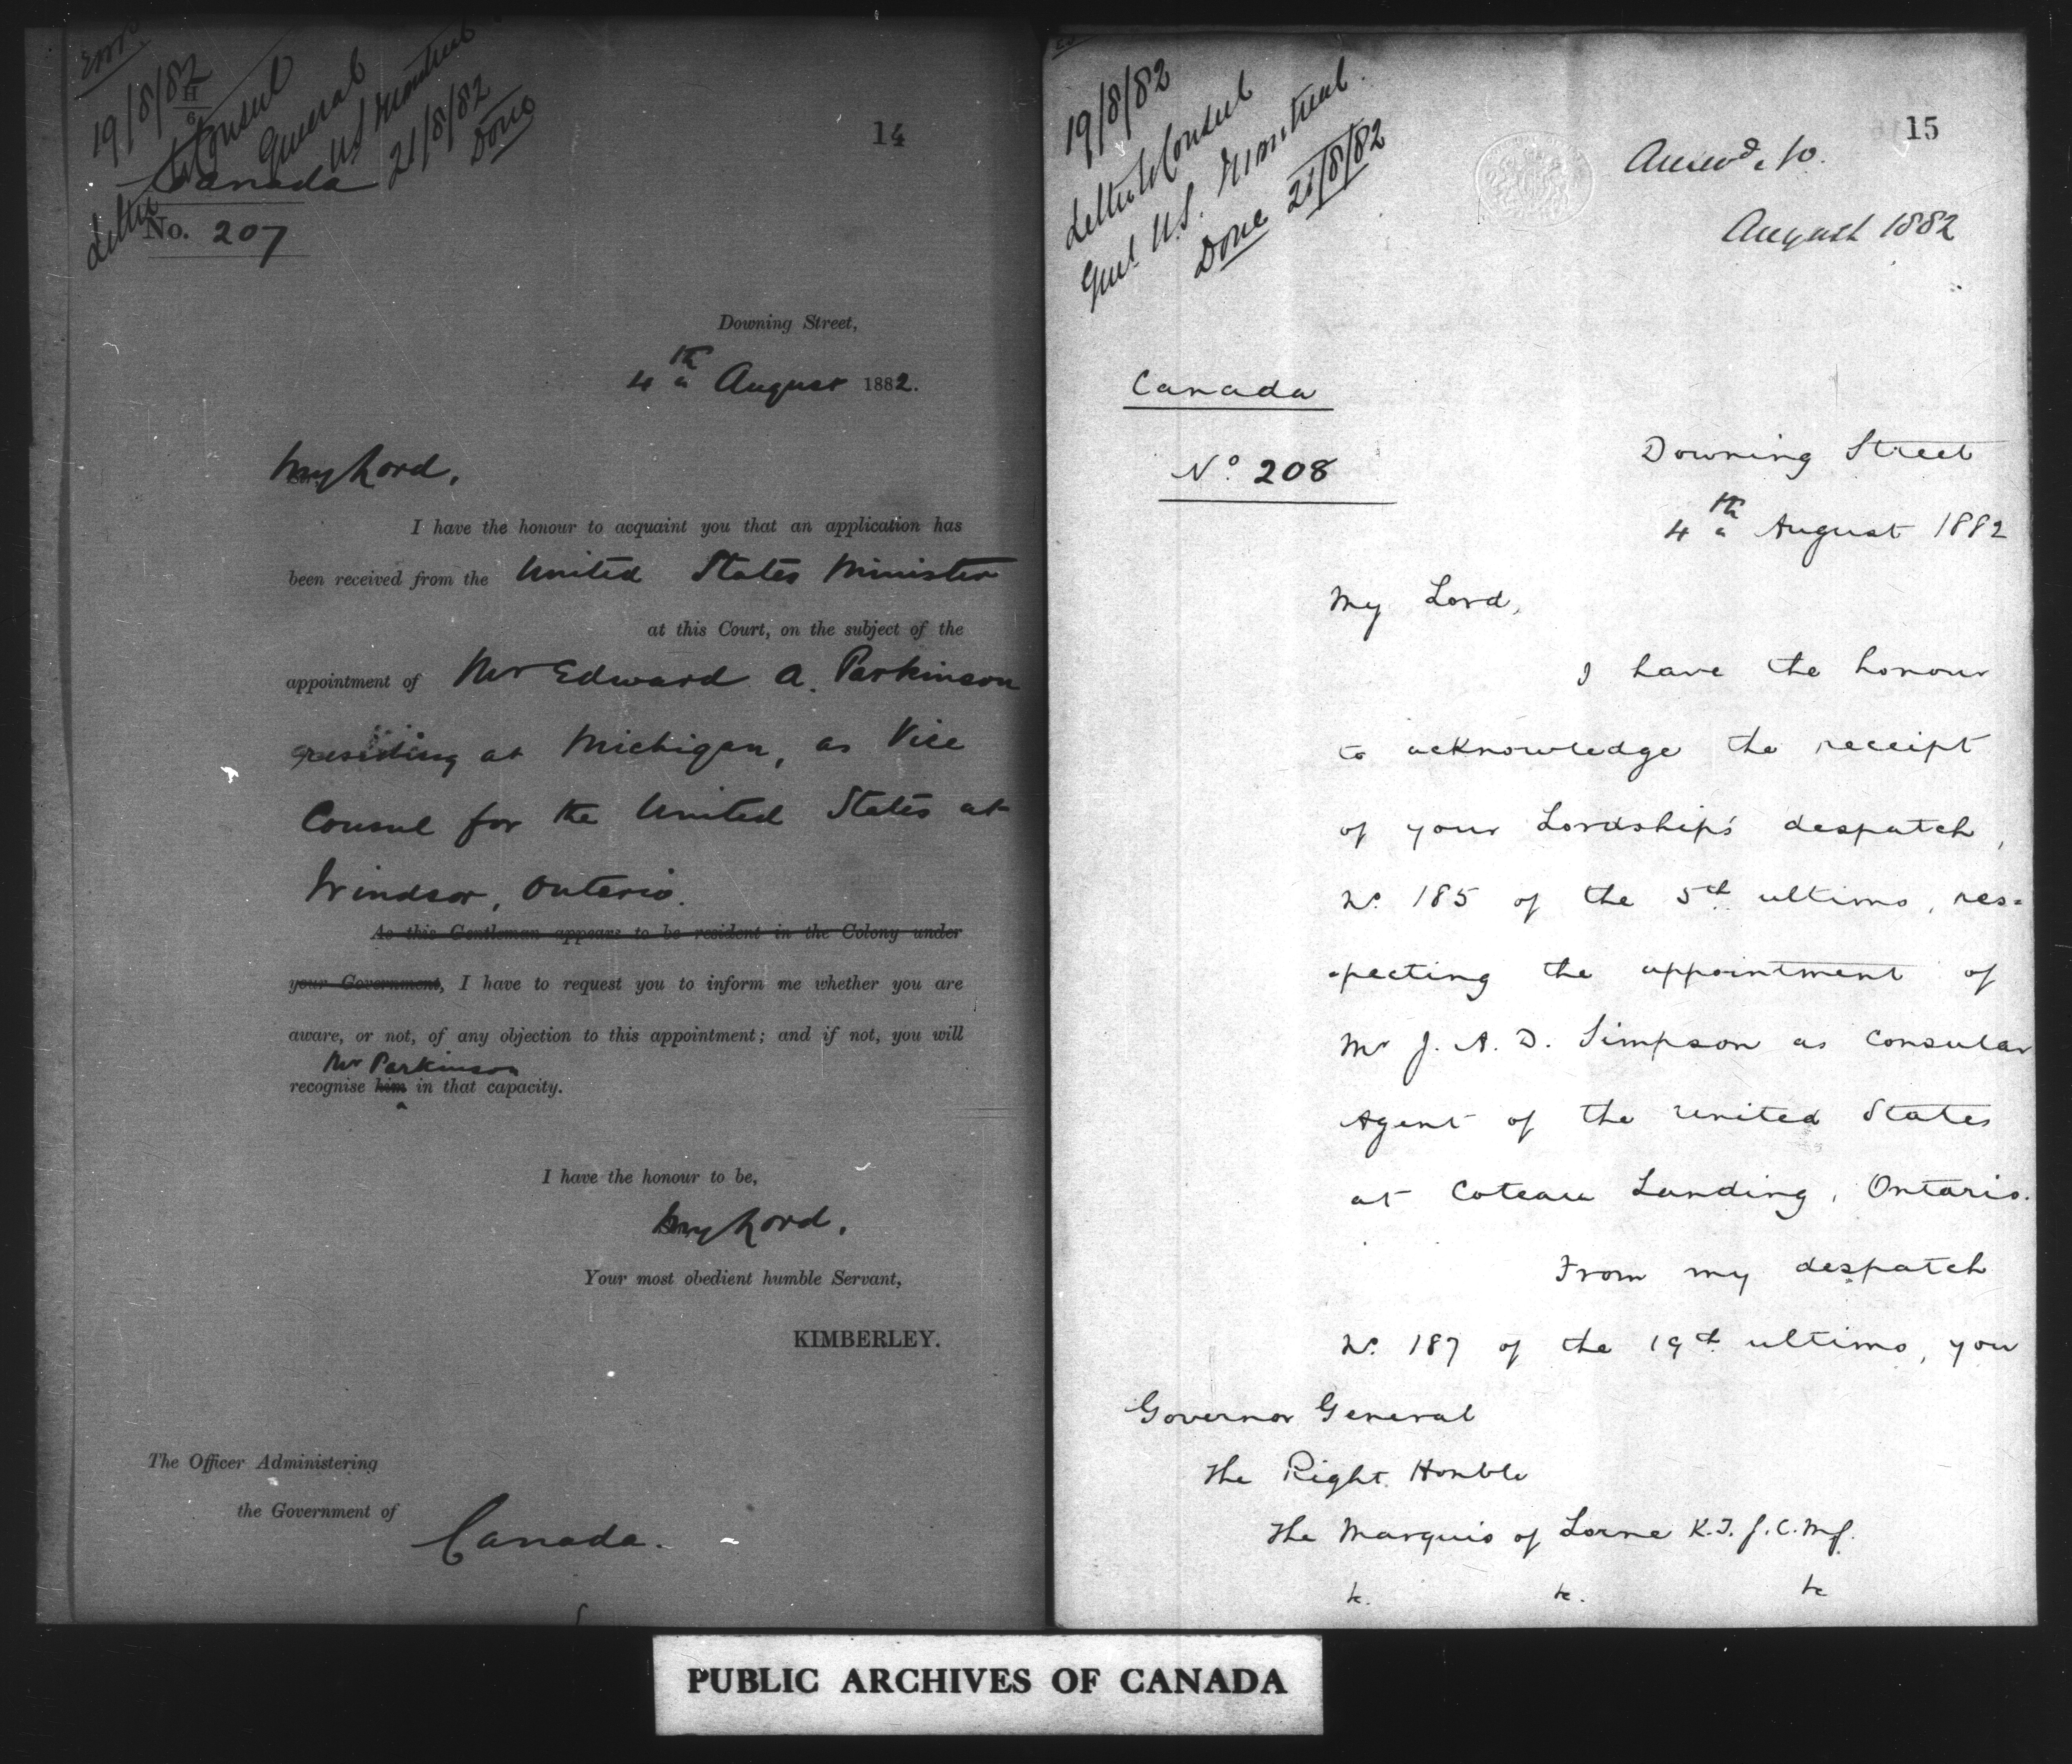 19/8/82
Letter to Consul
General
U.S. Montreal
21/8/82
Done
14
Canada
No. 207
Downing Street,
4th August 1882.
My Lord,
I have the honour to acquaint you that an application has
been received from the United States Minister
at this Court, on the subject of the
appointment of Mr Edward A. Parkinson
residing at Michigan, as Vice
Consul for the United States at
Windsor, Ontario.
As this Gentleman appears to be resident in the Colony under
your Government, I have to request you to inform me whether you are
aware, or not, of any objection to this appointment; and if not, you will
Mr Parkinson
recognise him in that capacity.
I have the honour to be,
My Lord,
Your most obedient humble Servant,
KIMBERLEY.
The Officer Administering
the Government of
Canada.
19/8/82
Letter to Consul
Genl U.S. Montreal.
Done 21/8/82
15
Answd 10.
August 1882
Canada
No. 208
Downing Street
4th August 1882
My Lord,
I have the honour
to acknowledge the receipt
of your Lordship's despatch,
No. 185 of the 5th ultimo, res-
-pecting the appointment of
Mr J. A. D. Simpson as Consular
Agent of the United States
at Coteau Landing, Ontario.
From my despatch
No. 187 of the 19th ultimo, you
Governor General
The Right Honble
The Marquis of Lorne K.T. G.C.M.G.
&c. &c. &c
PUBLIC ARCHIVES OF CANADA